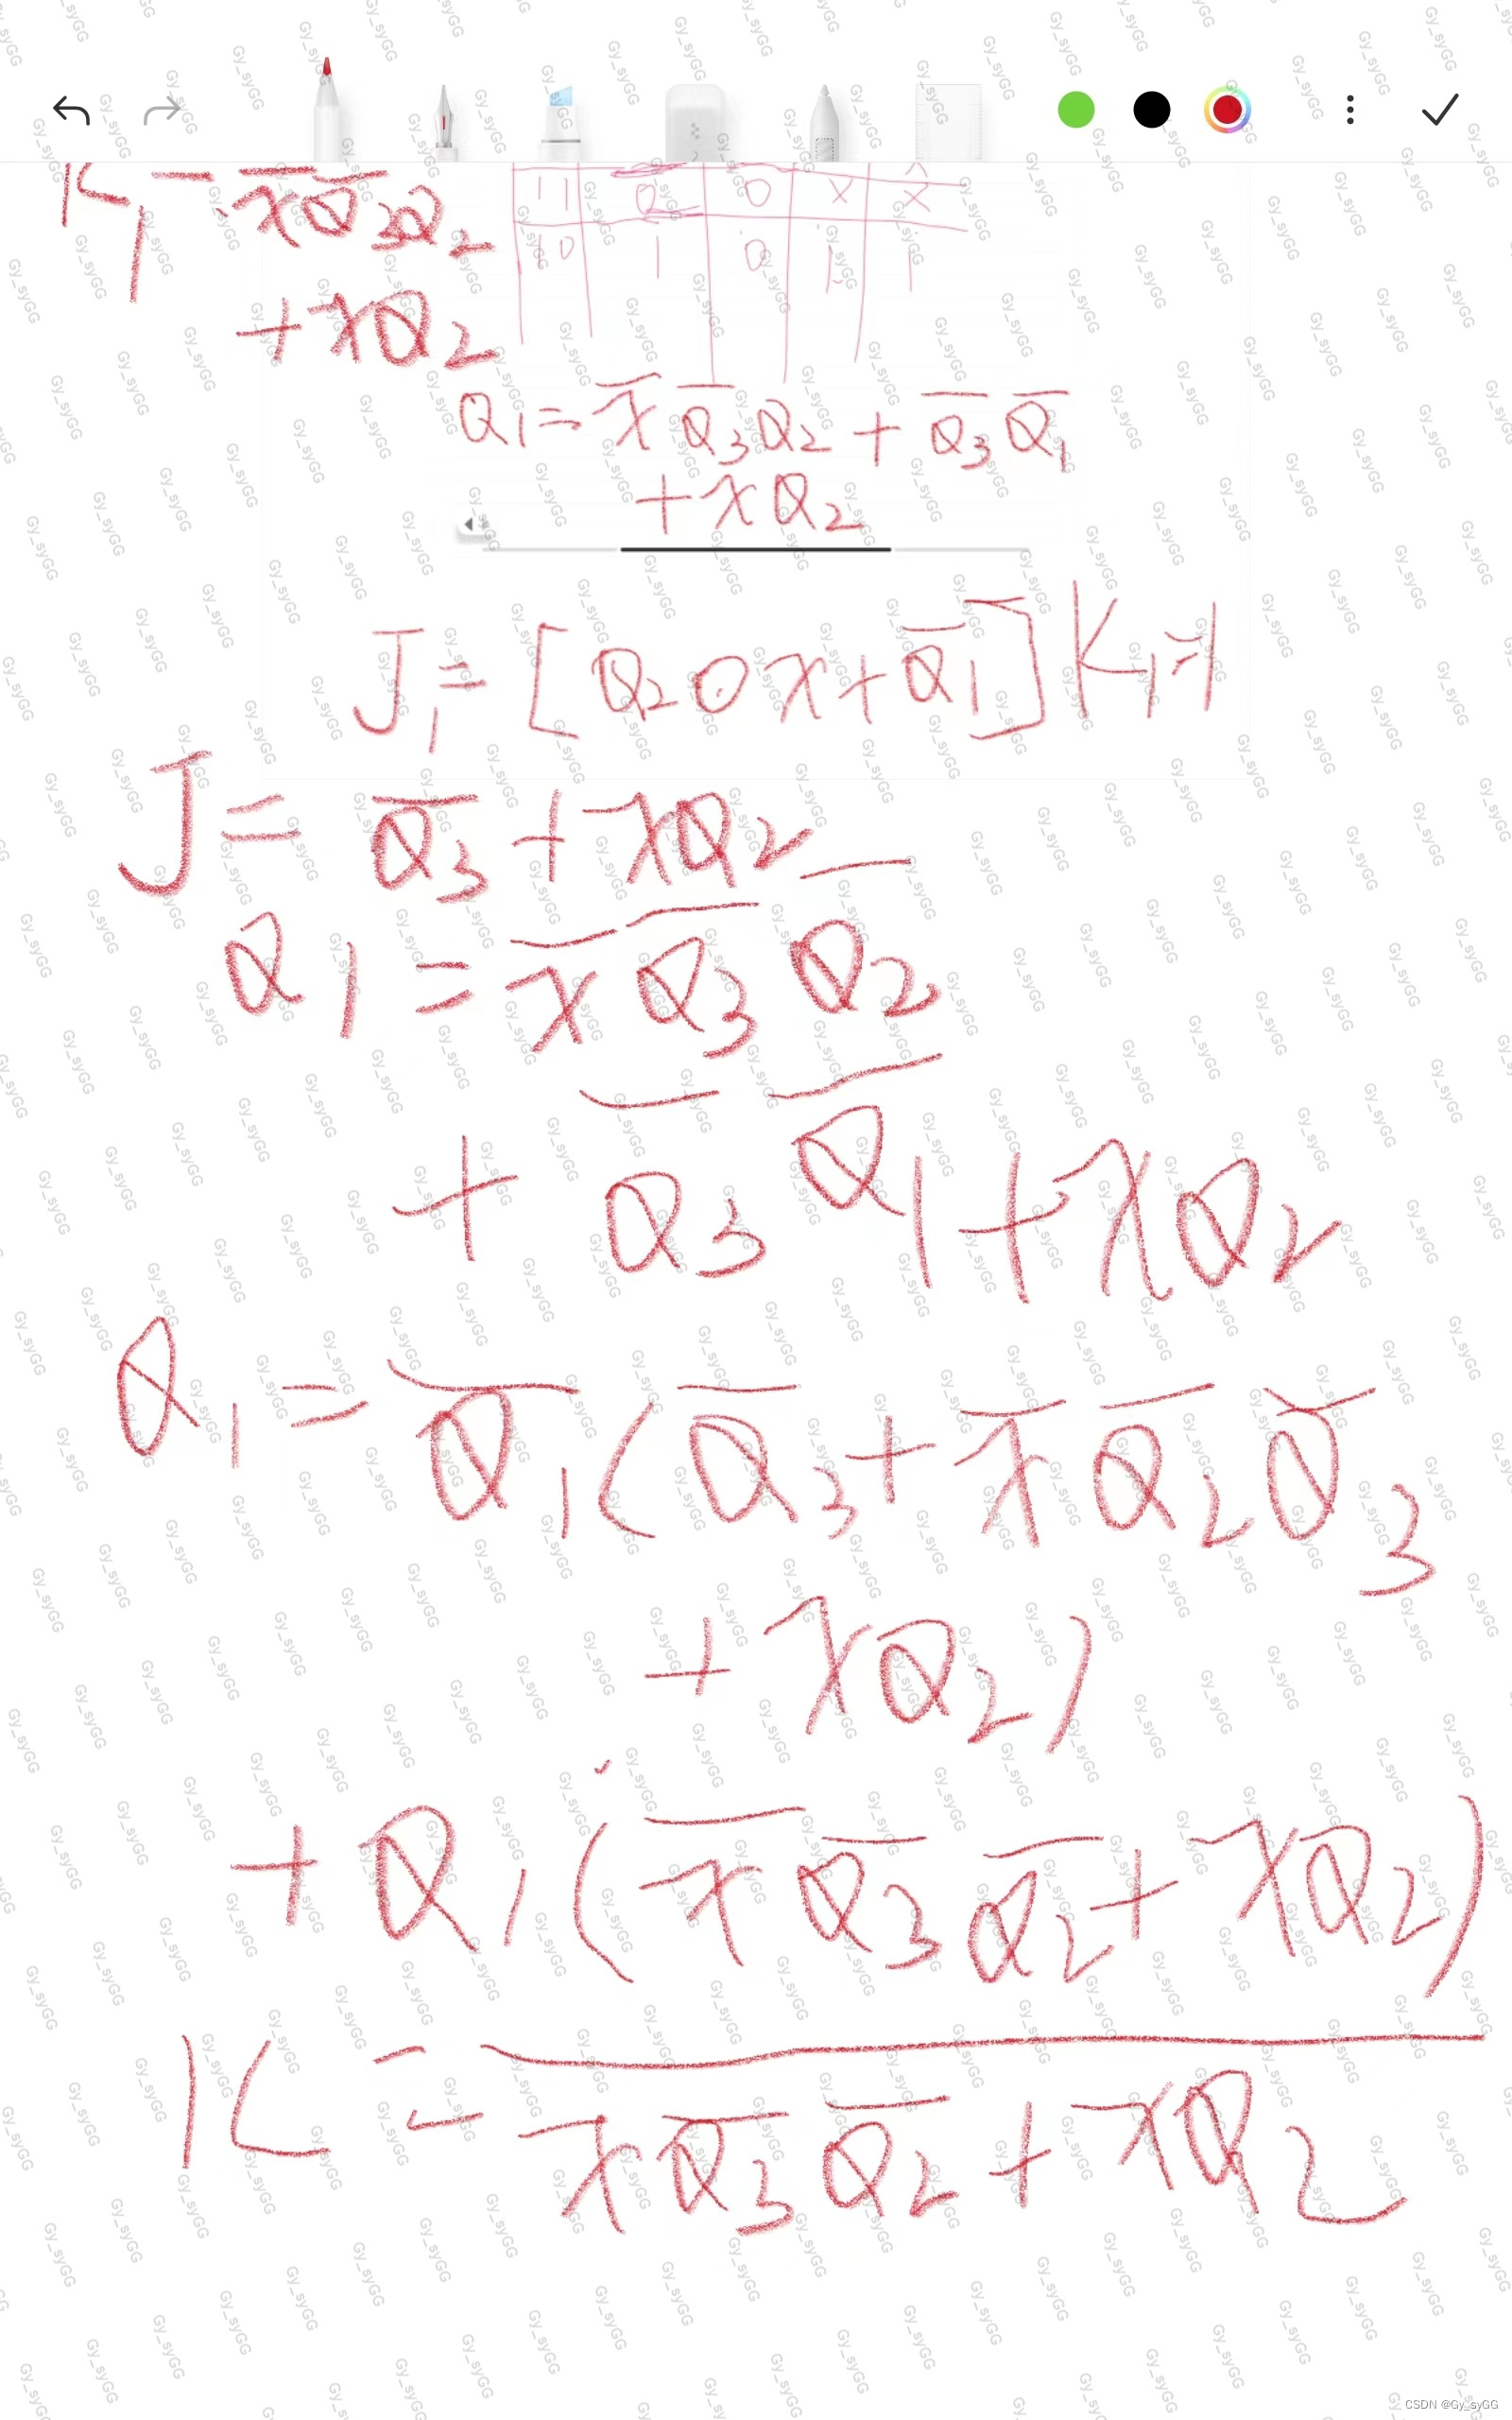 K₁ = x̄Q̄₃Q₂
+xQ₂
11 0 0 x x
10 1 0 1 1
Q₁ = x̄ Q̄₃Q₂ + Q̄₃Q̄₁
+ xQ₂
J₁ = [Q₂⊙x+Q̄₁] K₁=1
J = Q̄₃ + xQ₂
Q₁ = x̄ Q̄₃ Q₂
+ Q̄₃ Q̄₁ + xQ₂
Q₁ = Q̄₁(Q̄₃ + x̄ Q̄₂ Q̄₃
+ xQ₂)
+ Q₁(x̄ Q̄₃ Q̄₂ + xQ₂)
K = \overline{x Q̄₃ Q̄₂ + xQ₂}
CSDN @Gy_syGG